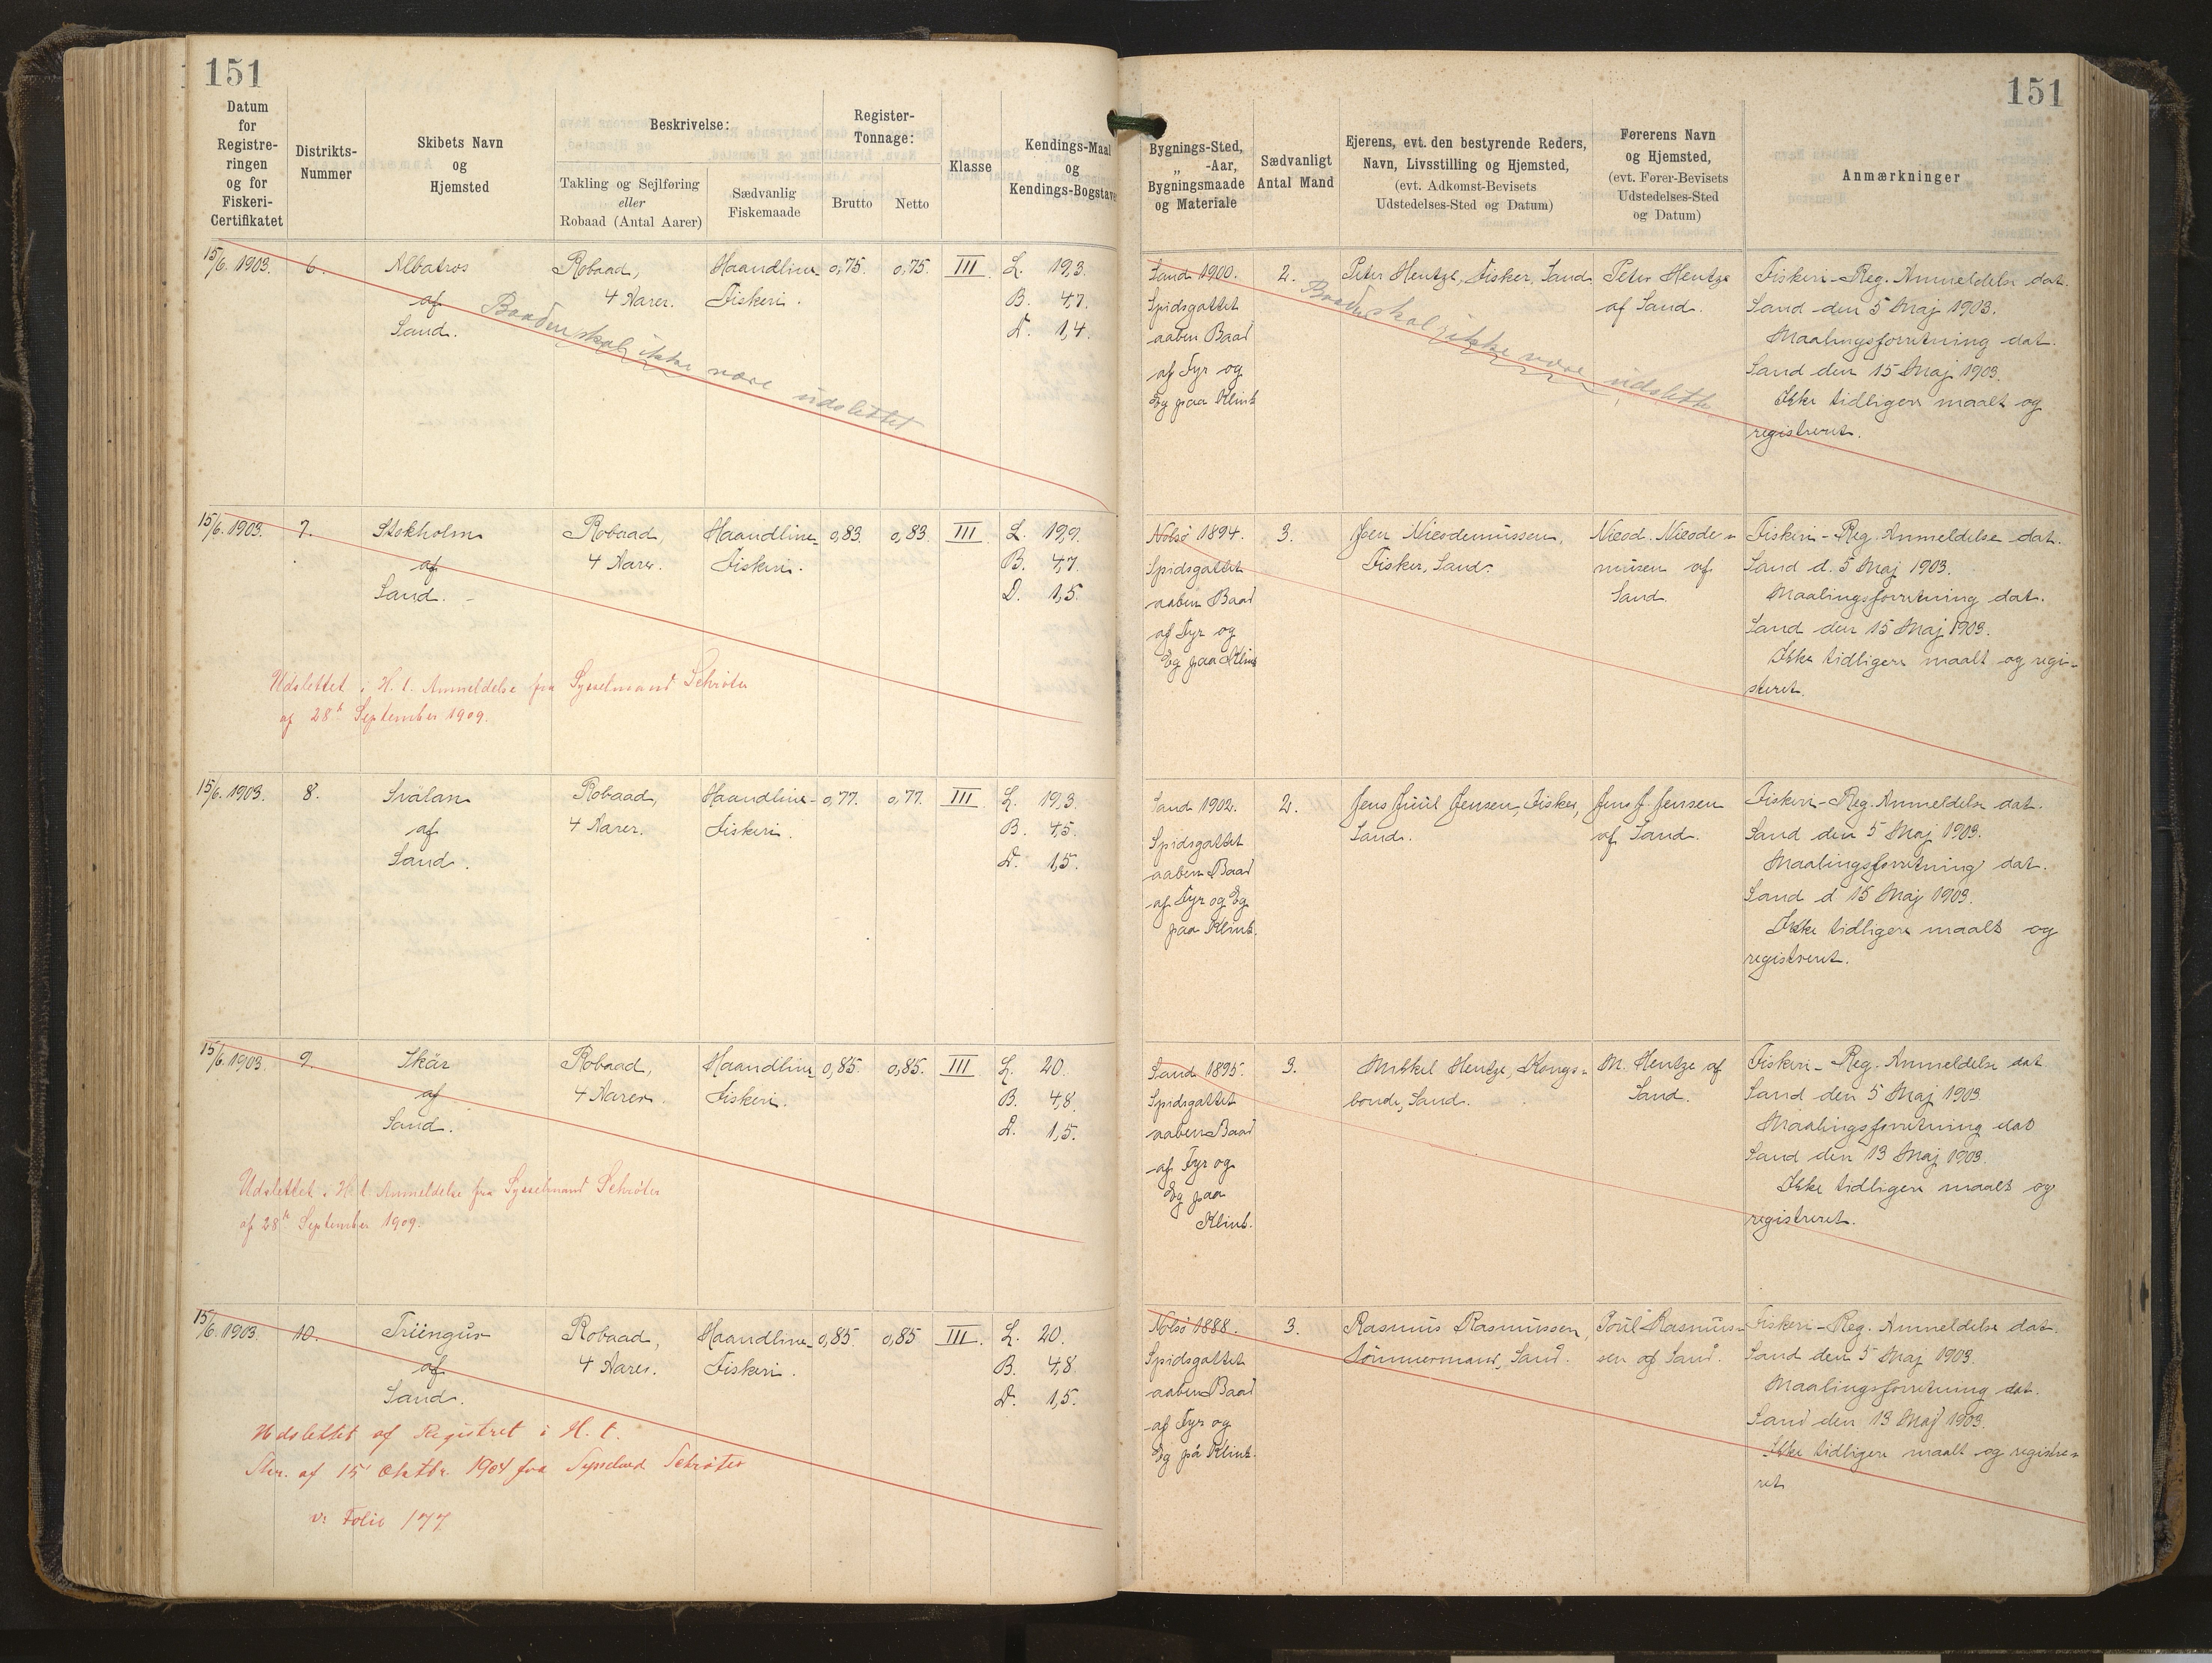 151
151
Datum
for
Registre-
ringen
og for
Fiskeri-
Certifikatet
Distrikts-
Nummer
Skibets Navn
og
Hjemsted
Beskrivelse:
Takling og Sejlføring
eller
Robaad (Antal Aarer)
Sædvanlig
Fiskemaade
Register-
Tonnage:
Brutto
Netto
Klasse
Kendings-Maal
og
Kendings-Bogstaver
Bygnings-Sted,
„ -Aar,
Bygningsmaade
og Materiale
Sædvanligt
Antal Mand
Ejerens, evt. den bestyrende Reders,
Navn, Livsstilling og Hjemsted,
(evt. Adkomst-Bevisets
Udstedelses-Sted og Datum)
Førerens Navn
og Hjemsted,
(evt. Fører-Bevisets
Udstedelses-Sted
og Datum)
Anmærkninger
15/6. 1903.
6.
Albatros
af
Sand.
Robaad,
4 Aarer.
Haandline-
Fiskeri.
0,75.
0,75.
III
L. 19,3.
B. 4,7.
D. 1,4.
Sand 1900.
Spidsgattet
aaben Baad
af Fyr og
Eg paa Klink
2.
Peter Hentze, Fisker, Sand
Peter Hentze
af Sand.
Fiskeri-Reg. Anmeldelse dat.
Sand den 5 Maj 1903.
Maalingsforretning dat.
Sand den 15 Maj 1903.
Ikke tidligere maalt og
registreret.
Baaden skal ikke være udslettet
Baaden skal ikke være udslettet
15/6. 1903.
7.
Stokholm
af
Sand.
Robaad,
4 Aarer.
Haandline-
Fiskeri.
0,83.
0,83.
III
L. 19,9.
B. 4,7.
D. 1,5.
Nolsö 1894.
Spidsgattet
aaben Baad
af Fyr og
Eg paa Klink
3.
Joen Nicodemussen,
Fisker, Sand.
Nicod. Nicode-
mussen af
Sand.
Fiskeri-Reg. Anmeldelse dat.
Sand d. 5 Maj 1903.
Maalingsforretning dat.
Sand den 15 Maj 1903.
Ikke tidligere maalt og regi-
steret.
Udslettet i H. t. Anmeldelse fra Sysselmand Schröter
af 28de September 1909.
15/6. 1903.
8.
Svalan
af
Sand.
Robaad,
4 Aarer.
Haandline-
Fiskeri.
0,77.
0,77.
III
L. 19,3.
B. 4,5.
D. 1,5.
Sand 1902.
Spidsgattet
aaben Baad
af Fyr og Eg
paa Klink.
2.
Jens Juul Jensen, Fisker,
Sand.
Jens J. Jensen
af Sand.
Fiskeri-Reg. Anmeldelse dat.
Sand den 5 Maj 1903.
Maalingsforretning dat.
Sand d 15 Maj 1903.
Ikke tidligere maalt og
registreret.
15/6. 1903.
9.
Skär
af
Sand.
Robaad,
4 Aarer.
Haandline-
Fiskeri.
0,85.
0,85.
III
L. 20.
B. 4,8.
D. 1,5.
Sand 1895.
Spidsgattet
aaben Baad
af Fyr og
Eg paa
Klink.
3.
Mikkel Hentze, Kongs-
bonde, Sand.
M. Hentze af
Sand.
Fiskeri-Reg. Anmeldelse dat
Sand den 5 Maj 1903.
Maalingsforretning dat
Sand den 13 Maj 1903.
Ikke tidligere maalt og
registreret.
Udslettet i H. t. Anmeldelse fra Sysselmand Schröter
af 28de September 1909.
15/6. 1903.
10.
af
Sand.
Robaad,
4 Aarer.
Haandline-
Fiskeri.
0,85.
0,85
III.
L. 20.
B. 4,8.
D. 1,5.
Nolsö 1888.
Spidsgattet
aaben Baad
af Fyr og
Eg på Klink.
3.
Rasmus Rasmussen,
Tömmermand, Sand.
Poul Rasmus-
sen af Sand.
Fiskeri-Reg. Anmeldelse dat.
Sand den 5 Maj 1903.
Maalingsforretning dat.
Sand den 13 Maj 1903.
Ikke tidligere maalt og registre-
ret
Udslettet af Registret i H. t.
Skr. af 15 Oktbr. 1904 fra Sysselmd Schröter
v: Folio 177